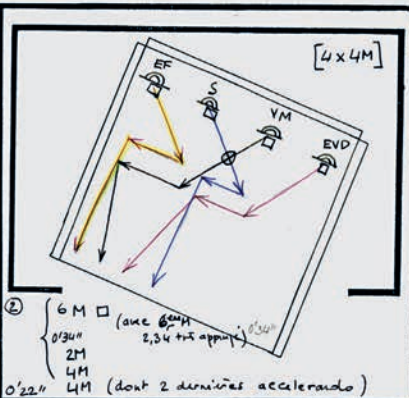 [4 x 4M]
EF
S
VM
EVD
② 6 M □ (avec 6ème M
0'34" 2,34 très appuyé) 0'34"
2M
4M
0'22" 4M (dont 2 dernières accelerando)